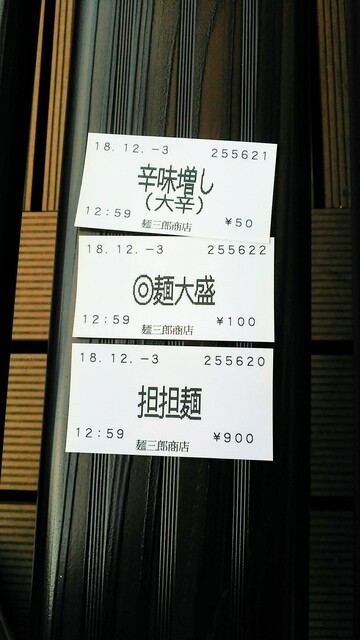 18.12.-3 255621
辛味増し
(大辛)
12:59 麺三郎商店 ¥50
18.12.-3 255622
◎麺大盛
12:59 麺三郎商店 ¥100
18.12.-3 255620
担担麺
12:59 麺三郎商店 ¥900